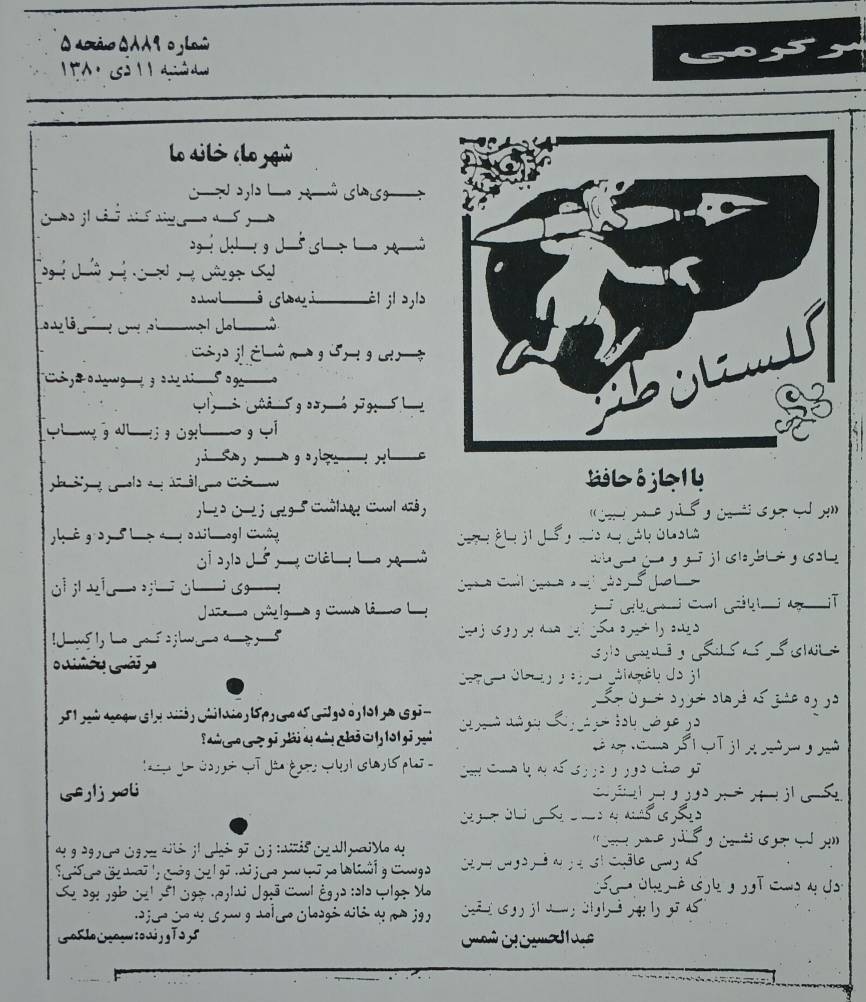 سرگرمی
شماره ۵۸۸۹ صفحه ۵
سه‌شنبه ۱۱ دی ۱۳۸۰
گلستان طنز
با اجازهٔ حافظ
«بر لب جوی نشین و گذر عمر ببین»
شادمان باش به دنیا و گل از باغ بچین
یادی و خاطره‌ای از تو و من می‌ماند
حاصل گردش همین است همین
آنچه نایافتنی است نمی‌یابی تو
دیده را خیره مکن این همه بر روی زمین
خانه‌ای گر که کلنگی و قدیمی داری
از دل باغچه‌اش مرزه و ریحان می‌چین
در ره عشق که فرهاد خورد خون جگر
در عوض بادهٔ خوش‌رنگ بنوشد شیرین
شیر و سرشیر پر از آب اگر هست، چه غم
تو صف دور و درازی که به پا هست ببین
یکی از بهر خبر دور و بر اینترنت
دیگری گشنه به دست یکی نان جوین
«بر لب جوی نشین و گذر عمر ببین»
که رسی عاقبت ای یار به فردوس برین
دل به دست آور و یاری غریبان می‌کن
که تو را بهر فراوان رسد از روی یقین
عبدالحسین بن شمس
شهر ما، خانه ما
جوی‌های شهر ما دارد لجن
هر که می‌بیند کند تُف از دهن
شهر ما جای گُل و بلبل بُود
لیک جویش پر لجن، پُر شُل بُود
دارد از اغذیه‌های فاسده
شامل اجسام بس بی‌فایده
چربی و برگ و هم شاخ از درخت
میوه گندیده و پوسیده درخت
یا کبوتر مُرده و کفش خراب
آب و صابون و زباله و پساب
عابر بیچاره و هر رهگذر
سخت می‌افتد به دامی پرخطر
رفته است بهداشت گویی زین دیار
پشت او مانده به جا گرد و غبار
شهر ما باغات پر گُل دارد آن
بوی نان تازه می‌آید از آن
با صفا هست و هوایش معتدل
گرچه می‌سازد کمی ما را کسل!
مرتضی بخشنده
-توی هر اداره دولتی که می‌رم کارمندانش رفتند برای سهمیه شیر اگر
شیر تو ادارات قطع بشه به نظر تو چی می‌شه؟
- تمام کارهای ارباب رجوع مثل آب خوردن حل میشه!
ناصر زارعی
به ملانصرالدین گفتند: زن تو خیلی از خانه بیرون می‌رود و به
دوست و آشناها مرتب سر می‌زند. تو این وضع را تصدیق می‌کنی؟
ملا جواب داد: دروغ است قبول ندارم. چون اگر این طور بود یک
روز هم به خانه خودمان می‌آمد و سری به من می‌زد.
گردآورنده: سیمین ملکمی